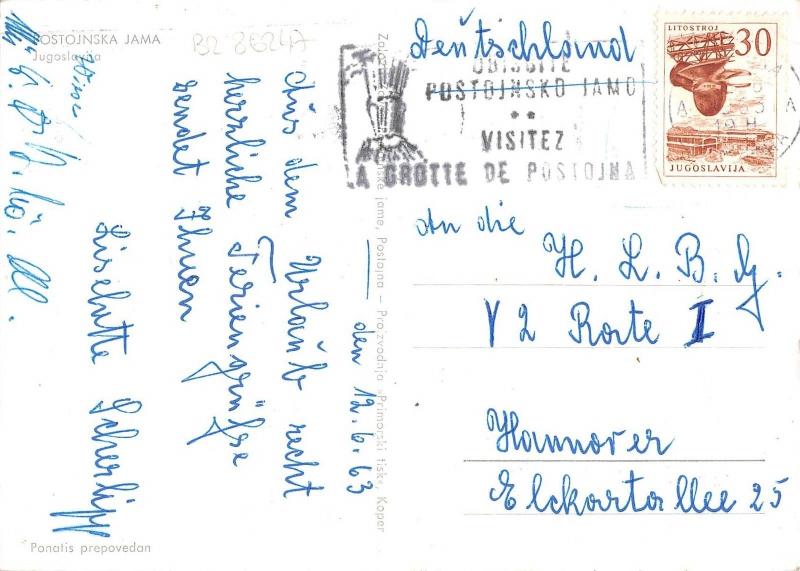 POSTOJNSKA JAMA
Jugoslavija
BZ 8624A
den 12.6.63
Aus dem Urlaub recht
herzliche Feriengrüße
sendet Ihnen
Liselotte
Ponatis prepovedan
Postojna - Proizvodnja »Primorski tisk«, Koper
Deutschland
OBIŠČITE
POSTOJNSKO JAMO
VISITEZ
LA GROTTE DE POSTOJNA
LITOSTROJ
30
JUGOSLAVIJA
An die
H. L. B. G.
V 2 Rate I
Hannover
Elkartallee 25